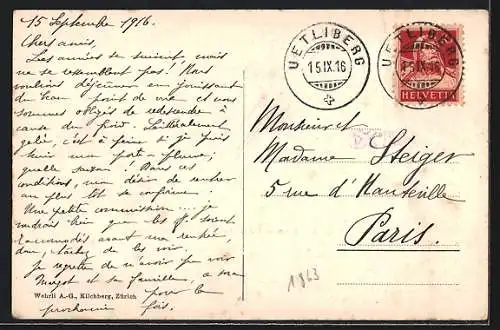 15 Septembre 1916.
Chers amis,
Les années se suivent mais
ne se ressemblent pas! Nous
voulions déjeuner en jouissant
du beau point de vue et nous
sommes obligés de redescendre
cause du froid. Littéralement
gelé, c'est à peine si je puis
tenir ma porte-plume;
quelle saison! Dans ces
conditions, mon désir de rentrer
au plus tôt se confirme.
Une petite commission ... je
voudrais bien que les soient
avant ma rentrée,
donc, tâchez de les voir.
Je regrette de n'avoir pu voir
et sa famille, à
pour la
prochaine fois.
Wehrli A.-G., Kilchberg, Zürich
UETLIBERG
15.IX.16
UETLIBERG
15.IX.16
HELVETIA
Monsieur et
Madame Steiger
5 rue d'Hauteville
Paris.
1863